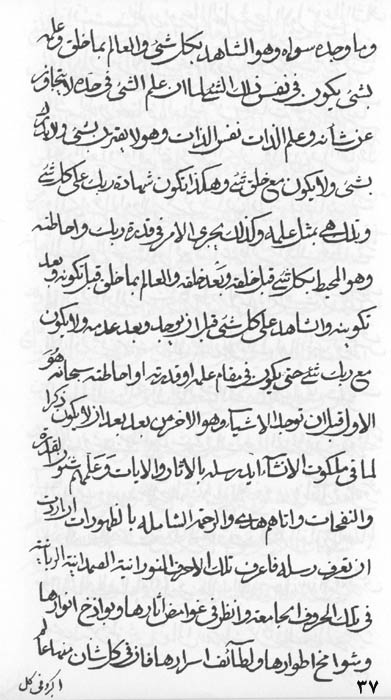 وما وجد سواه وهو الشاهد بكل شئ والعالم بما خلق وعلمه
بشئ يكون في نفس ذلك الشئ لان علم الشئ في حده لا يتجاوز
عن شأنه وعلم الذات نفس الذات وهو لا يقترن بشئ ولا
بشئ ولا يكون مع خلق شئ وهكذا يكون شهادة ربك على كل شئ
وذلك هي بمثل علمه وكذلك يجري الامر في قدرة ربك واحاطته
وهو المحيط بكل شئ قبل خلقه وبعد خلقه والعالم بما خلق قبل تكونه وبعد
تكوينه والشاهد على كل شئ قبل ان يوجد وبعد عدمه ولا يكون
مع ربك شئ حتى يكون في مقام علمه او قدرته او احاطته سبحانه هو
الاول قبل ان توجد الاشياء وهو الاخر من بعد بعد ان لا يكون ذكرا
لما في ملكوت الانشاء ايد رسله بالاثار والايات وعلمهم شئون القدرة
والنفحات واتاهم هدى والرحمة الشاملة بالظهورات ان اردت
ان تعرف رسله فاعرف تلك الاحرف النورانية الصمدانية الربانية
في تلك الحروف الجامعة وانظر في غوامض آثارها وبواذخ انوارها
وشوامخ اطوارها ولطائف اسرارها فان في كل شان منها
٣٧